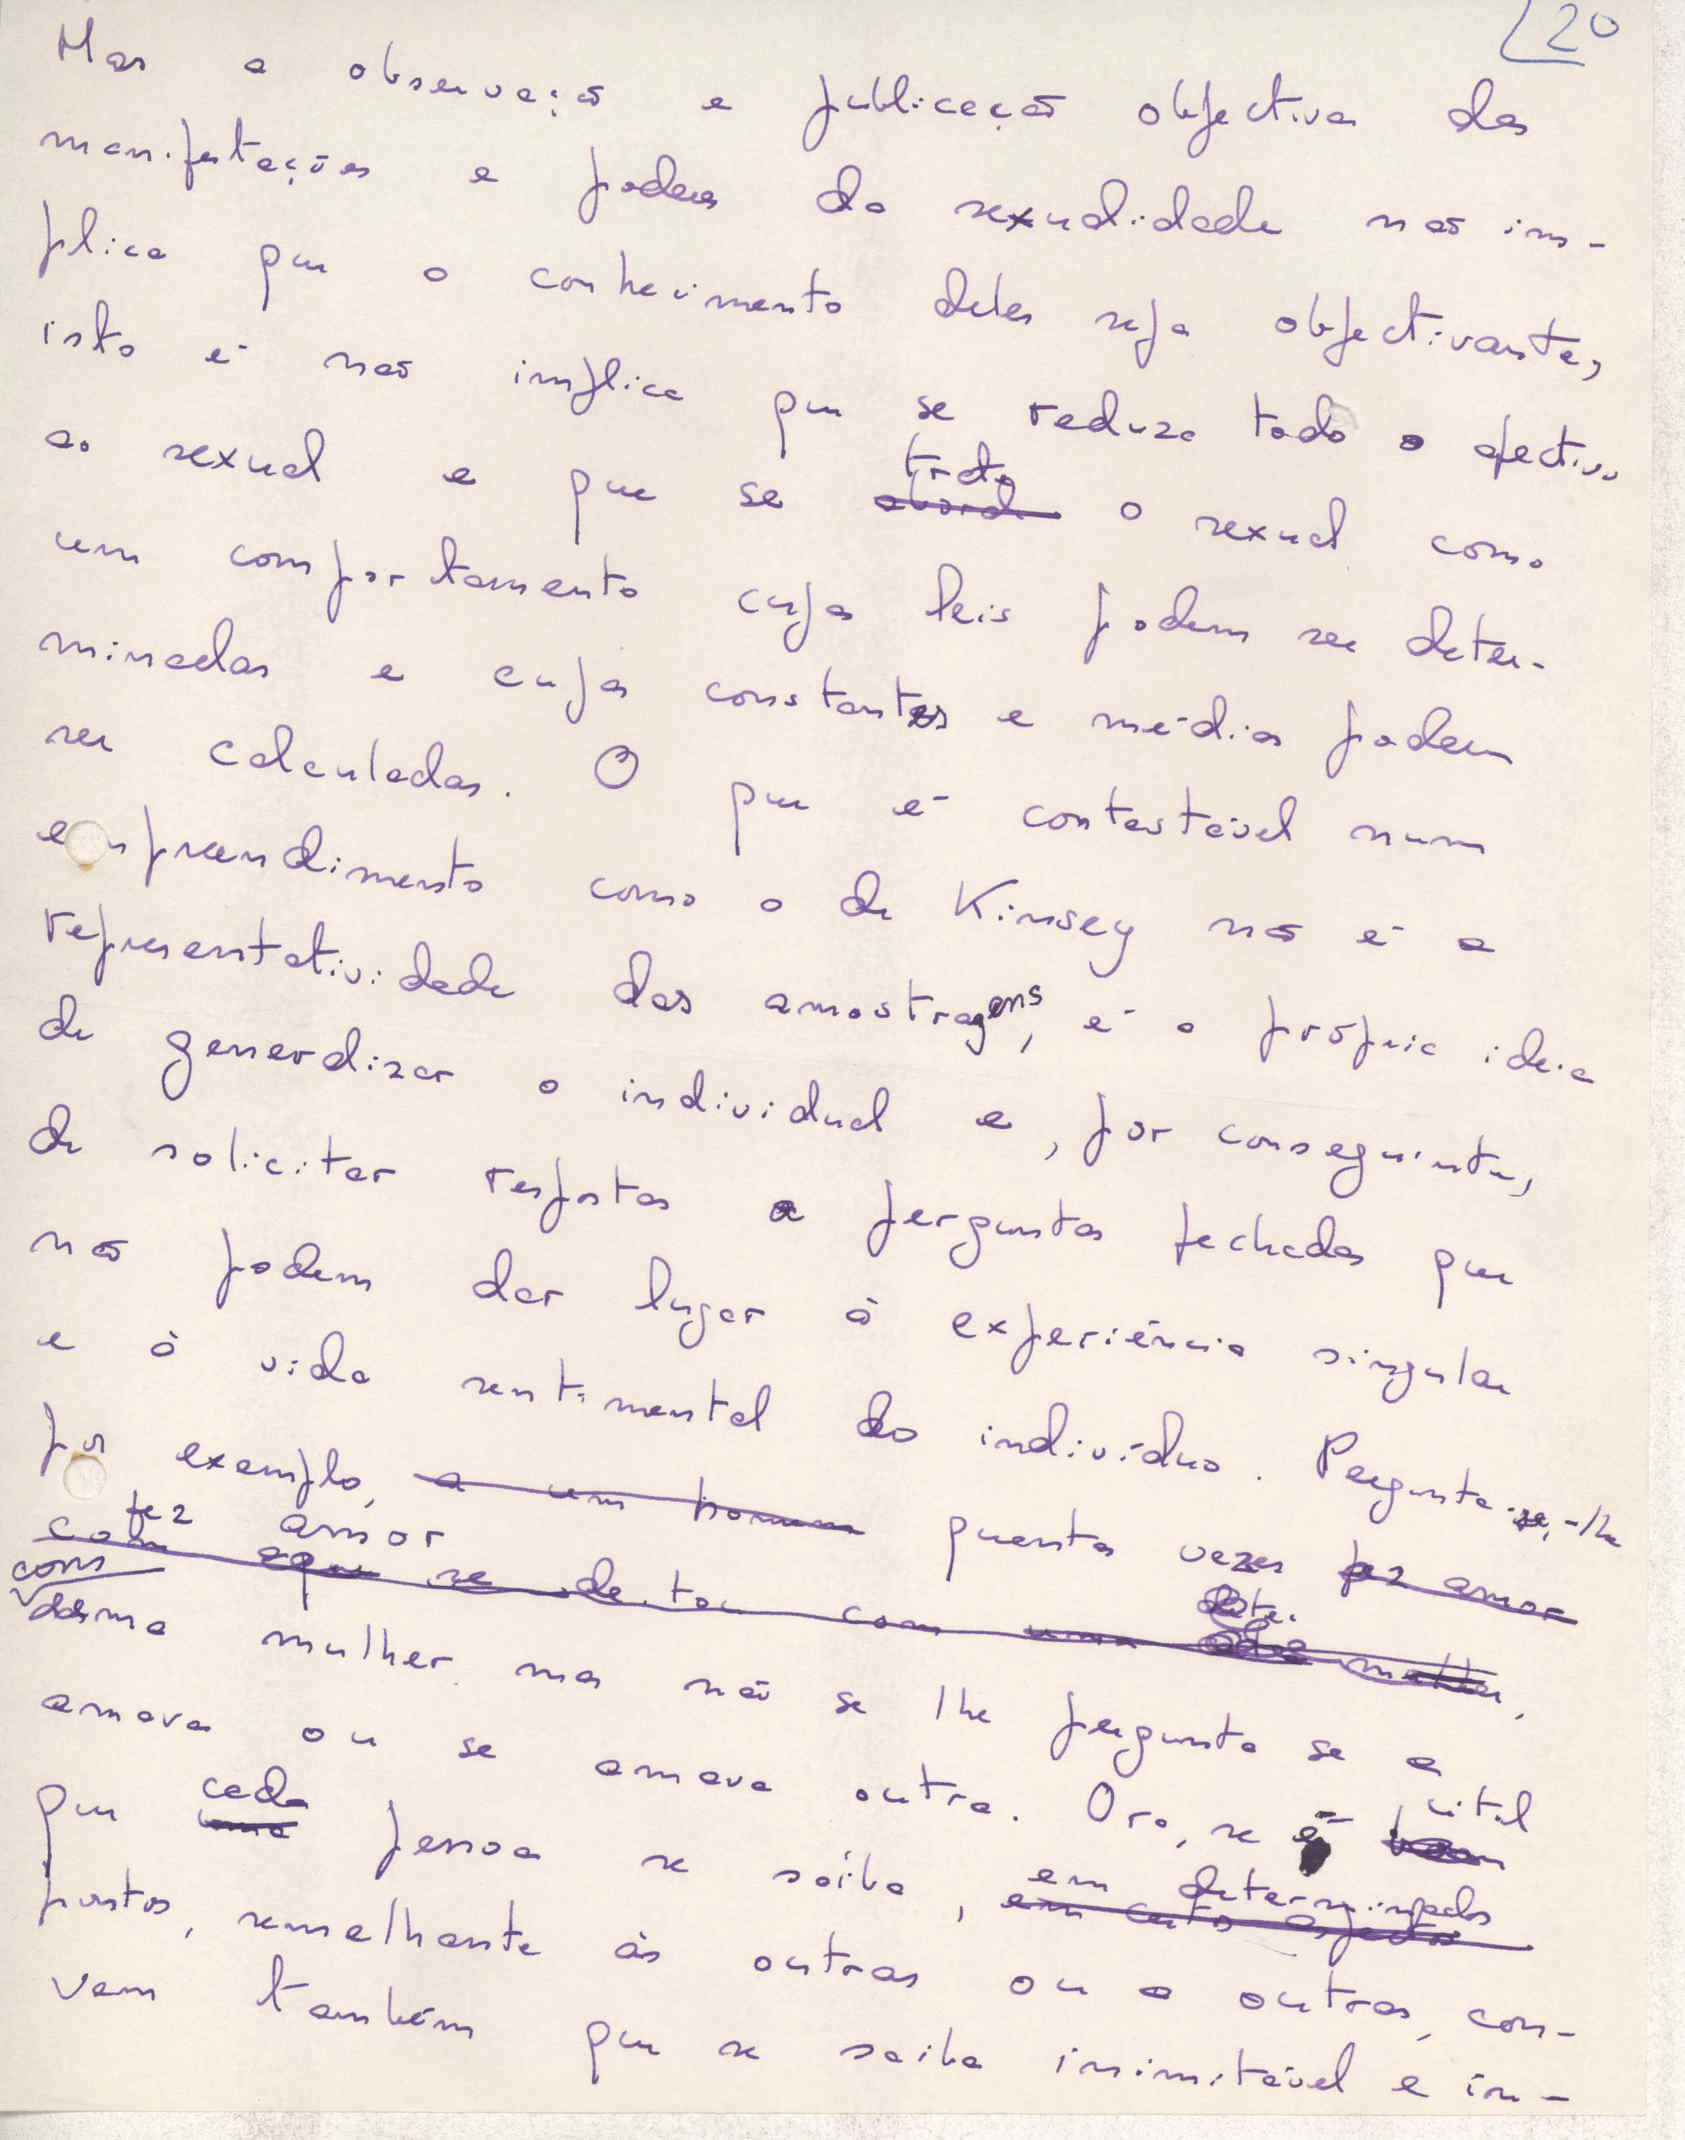 20
Mas a observação e publicação objectiva das
manifestações e poderes da sexualidade não im-
plica que o conhecimento deles seja objectivante,
isto é não implica que se reduza todo o afectivo
ao sexual e que se trate o sexual como
um comportamento cujas leis podem ser deter-
minadas e cujas constantes e médias podem
ser calculadas. O que é contestável num
empreendimento como o de Kinsey não é a
representatividade das amostragens, é a própria ideia
de generalizar o individual e, por conseguinte,
de solicitar respostas a perguntas fechadas que
não podem dar lugar à experiência singular
e à vida sentimental do indivíduo. Pergunta-se-lhe
por exemplo, a um homem quantas vezes fez amor
fez amor
com que se deitou com uma mulher,
com
mulher mas não se lhe pergunta se a
amava ou se amava outra. Ora, se é útil
que cada pessoa se saiba, em determinados
pontos, semelhante às outras ou a outras, con-
vem também que se saiba inimitável e in-